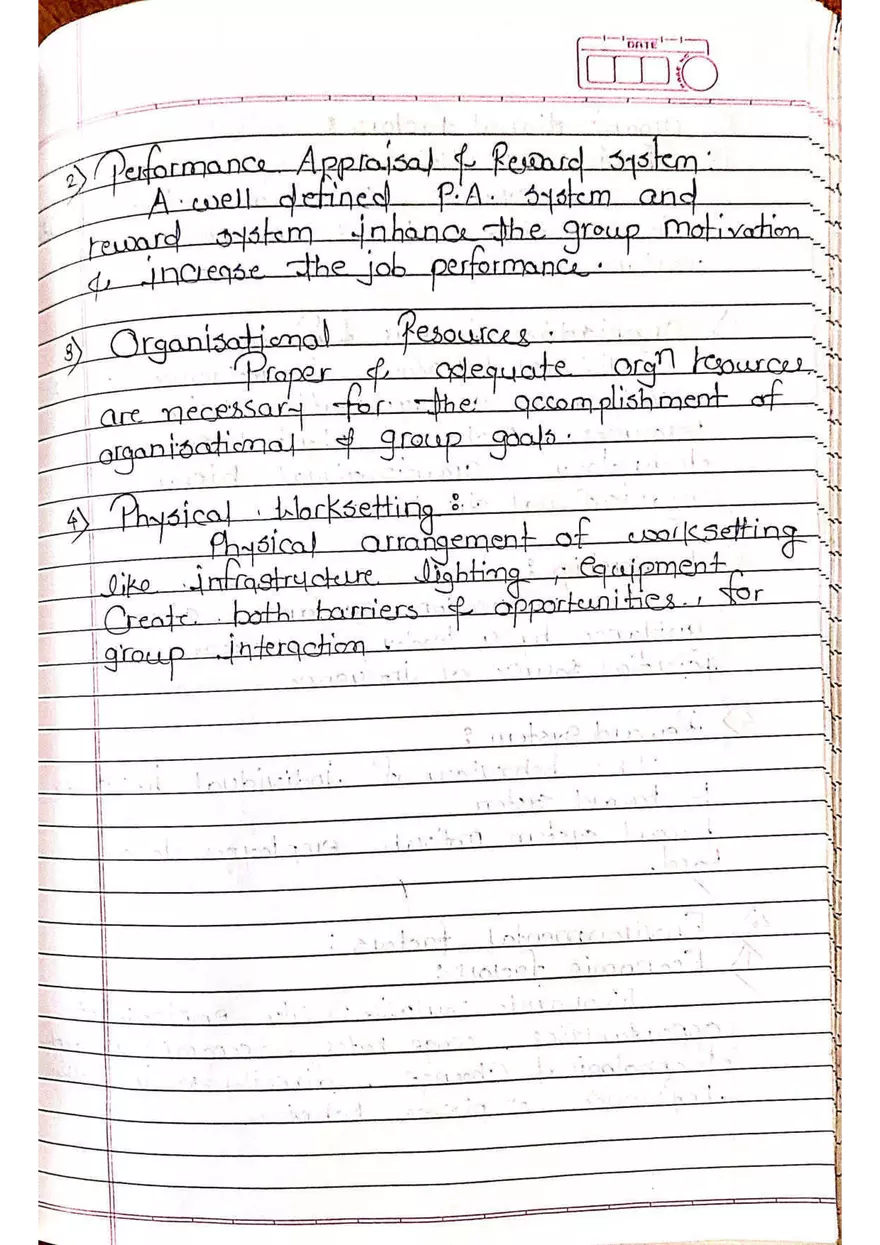 DATE
2) Performance Appraisal & Reward system:
A well defined P.A. system and
reward system inhance the group motivation
& increase the job performance.
3) Organisational Resources.
Proper & adequate orgn resources
are necessary for the accomplishment of
organisational & group goals.
4) Physical Worksetting :
Physical arrangement of worksetting
like infrastructure lighting, equipment
Create both barriers & opportunities, for
group interaction.